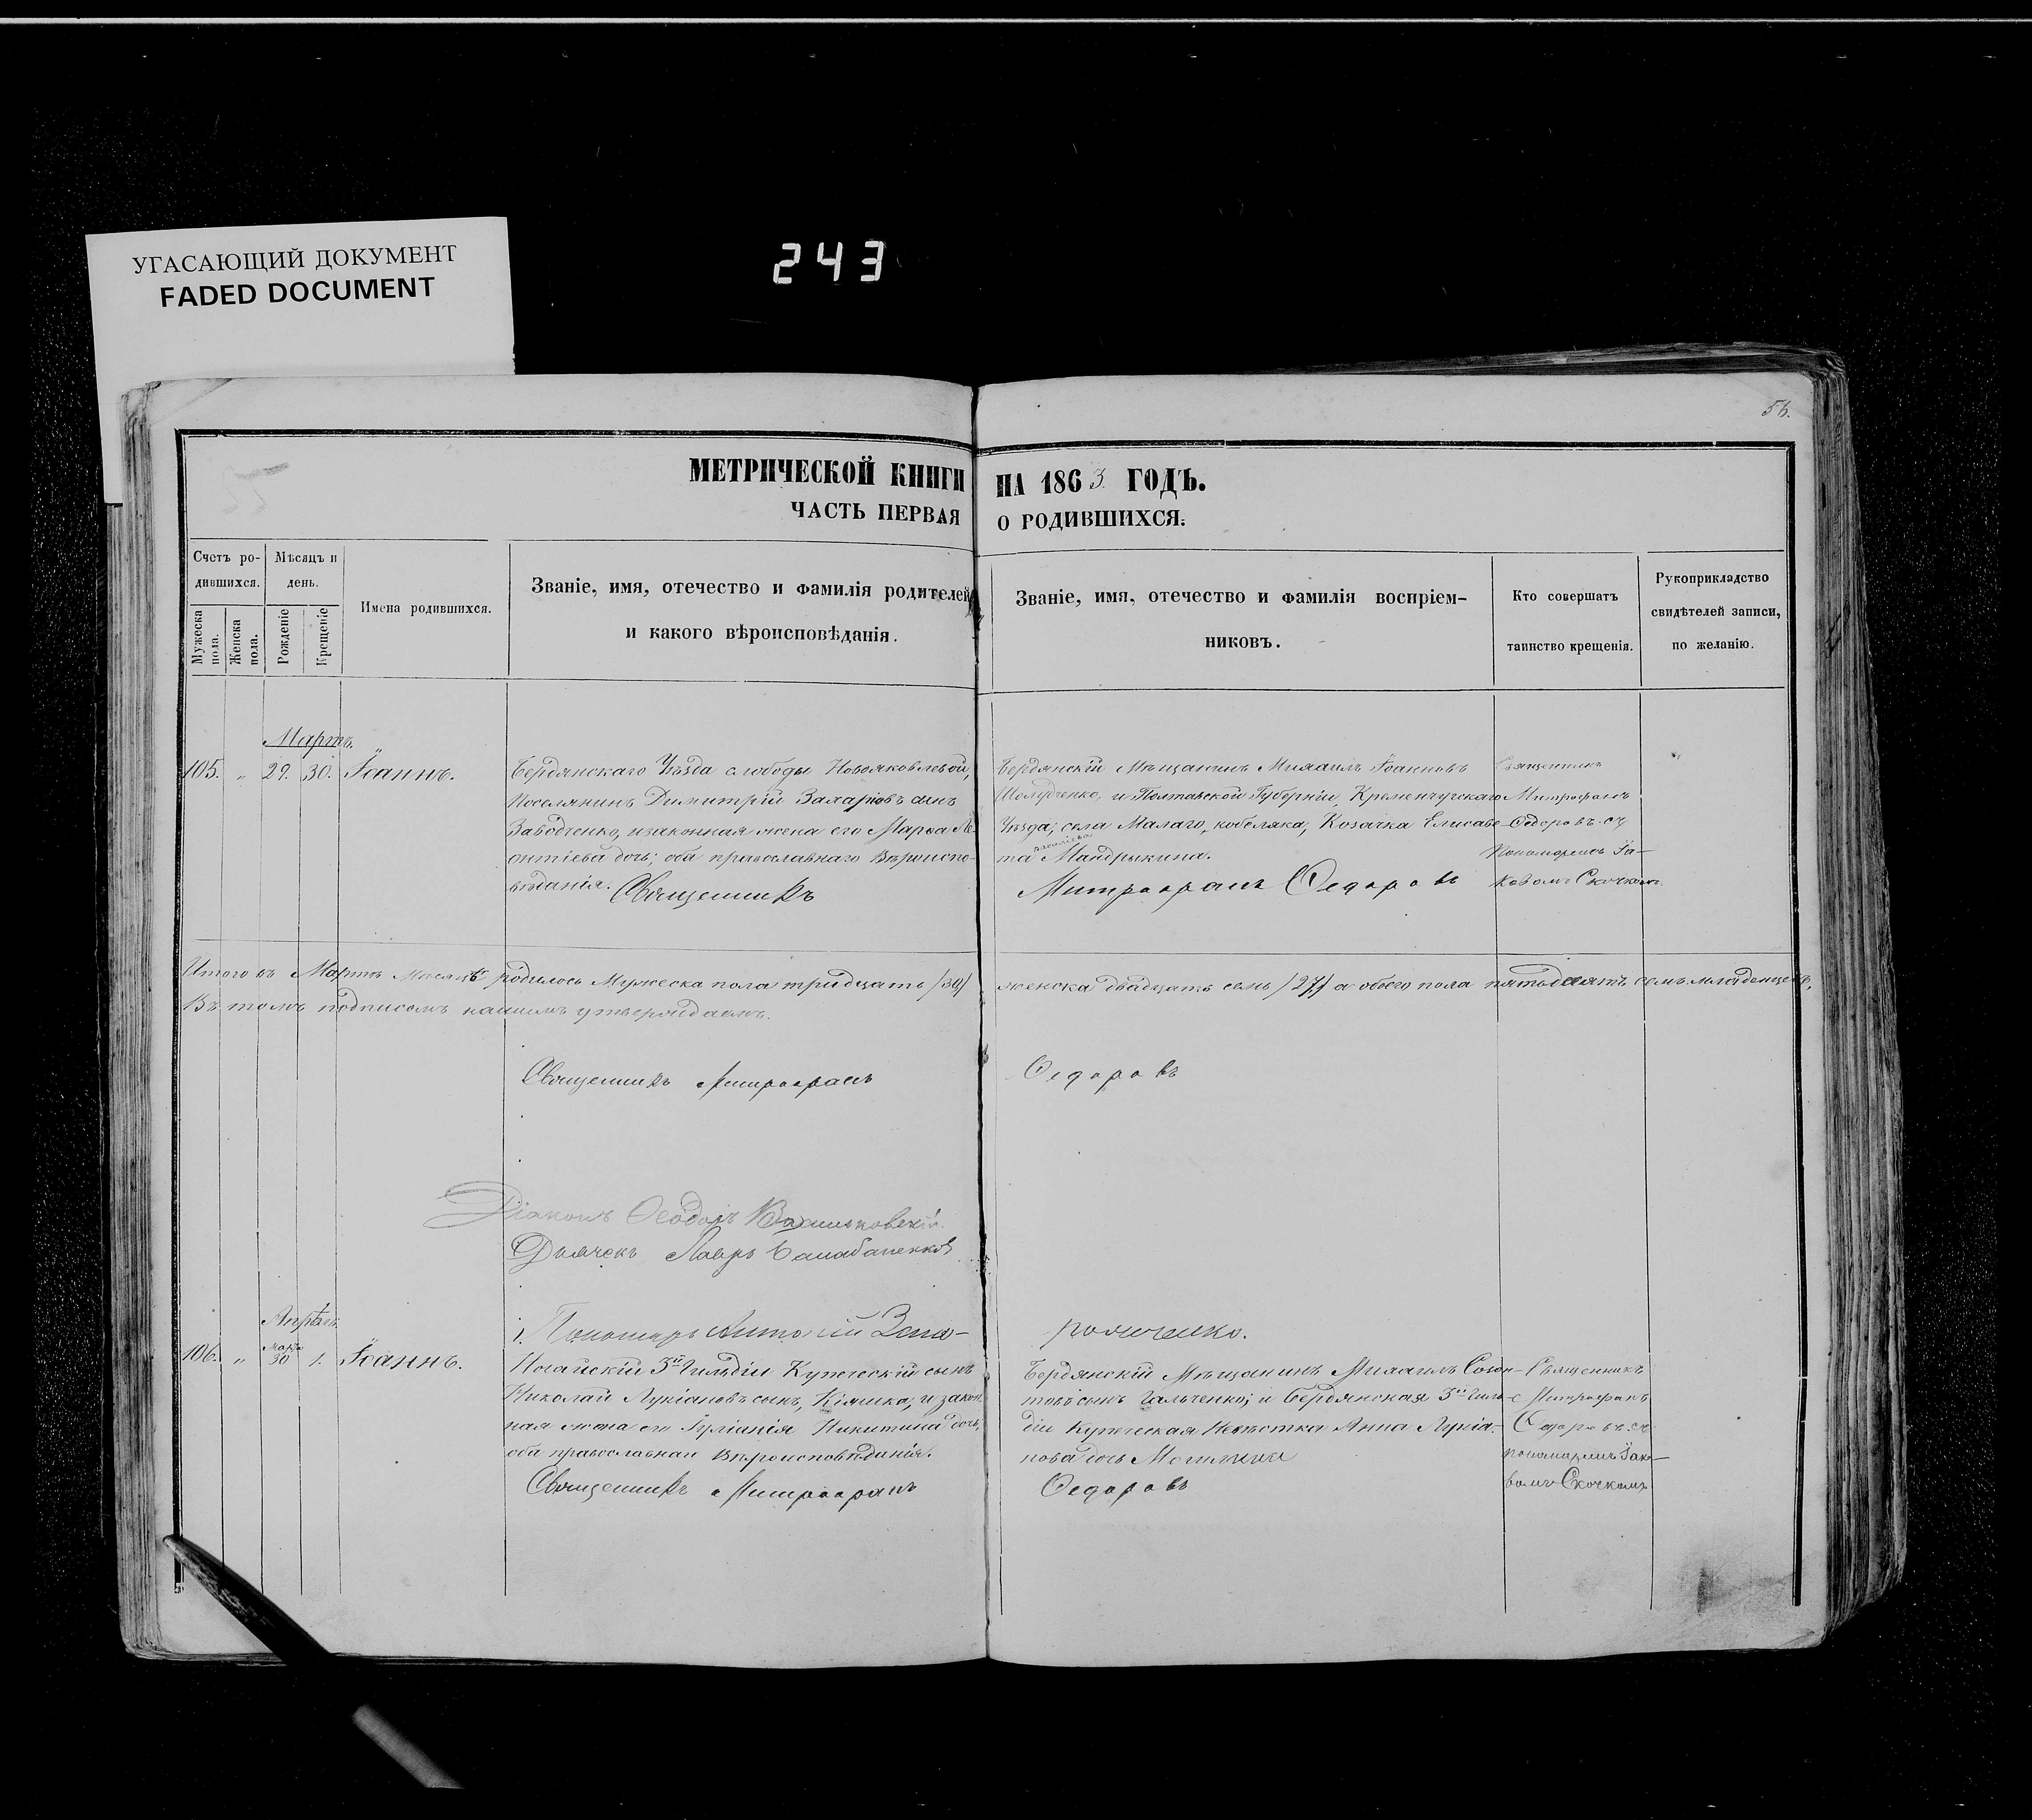 УГАСАЮЩИЙ ДОКУМЕНТ
FADED DOCUMENT
243
56.
МЕТРИЧЕСКОЙ КНИГИ НА 1863 ГОДЪ.
ЧАСТЬ ПЕРВАЯ О РОДИВШИХСЯ.
Счетъ ро-
дившихся.
Мужеска
пола.
Женска
пола.
Мѣсяцъ и
день.
Рожденіе
Крещеніе
Имена родившихся.
Званіе, имя, отечество и фамилія родителей
и какого вѣроисповѣданія.
Званіе, имя, отечество и фамилія воспріем-
никовъ.
Кто совершатъ
таинство крещенія.
Рукоприкладство
свидѣтелей записи,
по желанію.
Мартъ.
105. „ 29. 30. Іоаннъ.
Бердянскаго Уѣзда слободы Новояковлевой,
Поселянинъ Димитрій Захаріовъ сынъ
Заводченко, и законная жена его Марѳа Ле-
онтіева дочь; оба православнаго Вѣроиспо-
вѣданія. Священникъ
Бердянскій Мѣщанинъ Михаилъ Іоанновъ
и Полтавской Губерніи, Кременчугскаго
Уѣзда; села Малаго, кобеляка, Козачка Елисаве-
та Мандрыкина.
Митрофанъ Ѳедоровъ
Священникъ
Митрофанъ
Ѳедоровъ съ
Пономаремъ Іа-
ковомъ Скочкомъ.
Итого въ Мартѣ Мѣсяцѣ родилось Мужеска пола тридцать /30/ женска двадцать семь /27/ а обоего пола пятьдесятъ семь младенцевъ.
Въ томъ подписомъ нашимъ утверждаемъ.
Священникъ Митрофанъ Ѳедоровъ
Діаконъ Ѳеодоръ
Дьячекъ Лавръ
Пономарь Антоній
Апрѣль.
106. „ Марта 30 1. Іоаннъ.
Ногайскій 3й Гильдіи Купеческій сынъ
Николай Лукіановъ сынъ, Кіяшка; и закон-
ная жена его Іуліанія Никитина дочь,
оба православнаи Вѣроисповѣданія.
Священникъ Митрофанъ
Бердянскій Мѣщанинъ Михаилъ Созон-
товъ сынъ Гальченко; и Бердянская 3й Гиль-
діи Купеческая Невѣстка Анна Лукіа-
нова дочь
Ѳедоровъ
Священникъ
Митрофанъ
Ѳедоровъ съ
пономаремъ Іако-
вомъ Скочкомъ